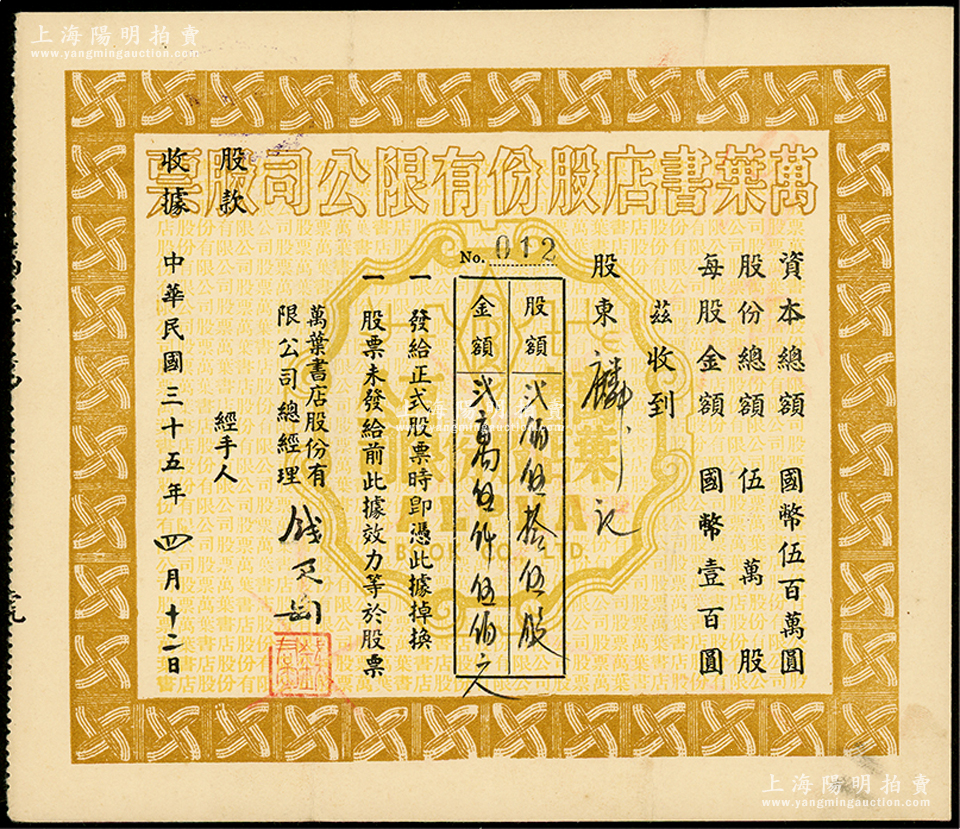 上海陽明拍賣
www.yangmingauction.com
萬葉書店股份有限公司股票
資本總額 國幣伍百萬圓
股份總額 伍萬股
每股金額 國幣壹百圓
茲收到
股東 麟記
No. 012
股額 弍佰伍拾伍股
金額 弍萬伍仟伍佰元
一 發給正式股票時即憑此據掉換
一 股票未發給前此據效力等於股票
萬葉書店股份有
限公司總經理 錢君匋
經手人
中華民國三十五年四月十二日
股款
收據
BOOK CO., LTD.
號
上海陽明拍賣
www.yangmingauction.com